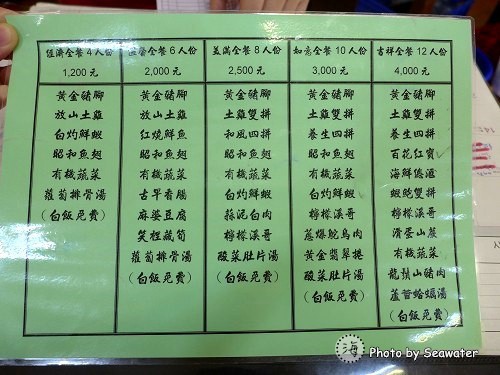 經濟全餐4人份
1,200元
黃金豬腳
放山土雞
白灼鮮蝦
昭和魚翅
有機蔬菜
蘿蔔排骨湯
(白飯免費)
全餐6人份
2,000元
黃金豬腳
放山土雞
紅燒鮮魚
昭和魚翅
有機蔬菜
古早香腸
麻婆豆腐
蘿蔔排骨湯
(白飯免費)
美滿全餐8人份
2,500元
黃金豬腳
土雞雙拼
和風四拼
昭和魚翅
有機蔬菜
白灼鮮蝦
蒜泥白肉
檸檬溪哥
酸菜肚片湯
(白飯免費)
如意全餐10人份
3,000元
黃金豬腳
土雞雙拼
養生四拼
昭和魚翅
有機蔬菜
白灼鮮蝦
檸檬溪哥
蔥爆鴕鳥肉
黃金翡翠捲
酸菜肚片湯
(白飯免費)
吉祥全餐12人份
4,000元
黃金豬腳
土雞雙拼
養生四拼
百花紅寶
海鮮億滙
蝦鮑雙拼
檸檬溪哥
滑蛋山蘇
有機蔬菜
龍鬚山豬肉
蘆薈蛤蠣湯
(白飯免費)
海
Photo by Seawater